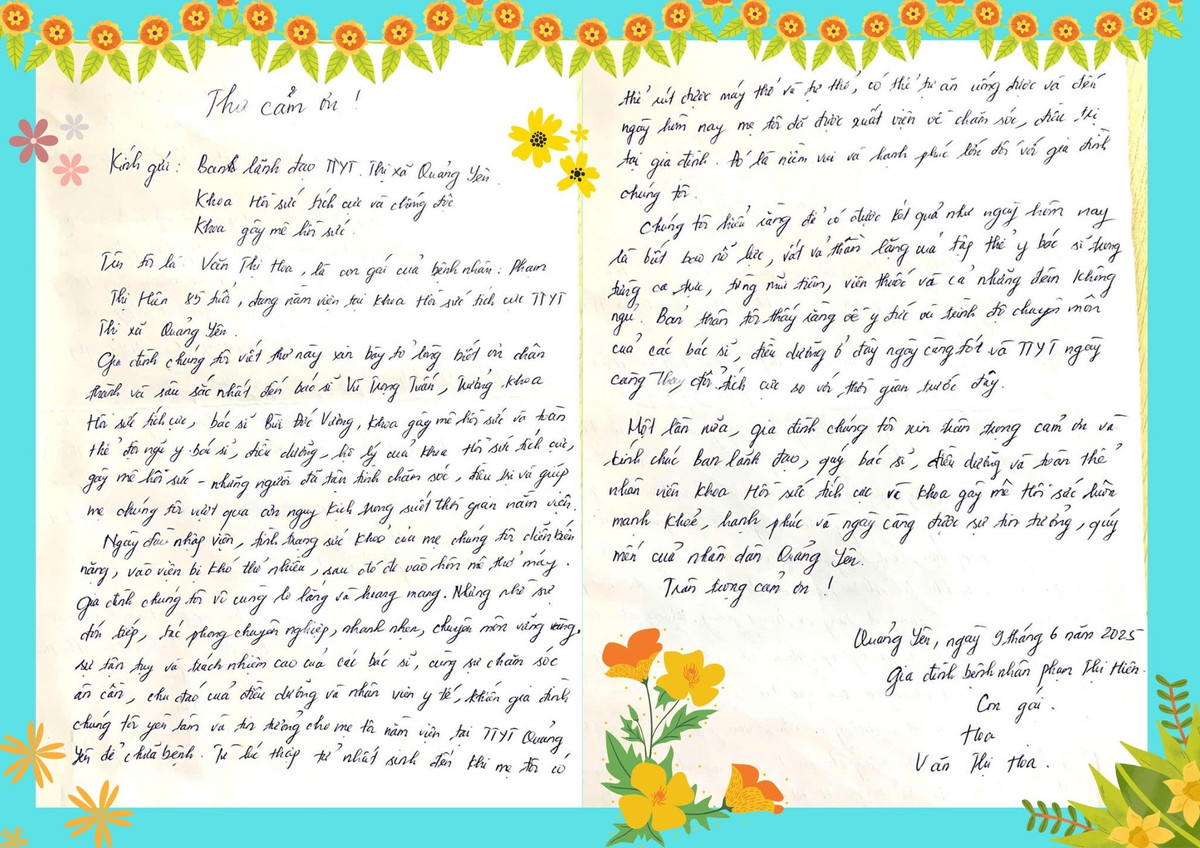 Thư cảm ơn !
Kính gửi : Banh lãnh đạo TTYT. Thị xã Quảng Yên
Khoa Hồi sức tích cực và chống độc
Khoa gây mê hồi sức.
Tên tôi là Văn Thị Hoa, là con gái của bệnh nhân : Phạm
Thị Hiên 85 tuổi, đang nằm viện tại khoa Hồi sức tích cực TTYT
Thị xã Quảng Yên.
Gia đình chúng tôi viết thư này xin bày tỏ lòng biết ơn chân
thành và sâu sắc nhất đến bác sĩ Vũ Trọng Tuấn, Trưởng khoa
Hồi sức tích cực, bác sĩ Bùi Đức Vượng, khoa gây mê hồi sức và toàn
thể đội ngũ y bác sĩ, điều dưỡng, hộ lý của khoa Hồi sức tích cực,
gây mê hồi sức - những người đã tận tình chăm sóc, điều trị và giúp
mẹ chúng tôi vượt qua cơn nguy kịch trong suốt thời gian nằm viện.
Ngày đầu nhập viện, tình trạng sức khoẻ của mẹ chúng tôi diễn biến
nặng, vào viện bị khó thở nhiều, sau đó đi vào hôn mê thở máy.
Gia đình chúng tôi vô cùng lo lắng và hoang mang. Nhưng nhờ sự
đón tiếp, tác phong chuyên nghiệp, nhanh nhẹn, chuyên môn vững vàng,
sự tận tuỵ và trách nhiệm cao của các bác sĩ, cùng sự chăm sóc
ân cần, chu đáo của điều dưỡng và nhân viên y tế, khiến gia đình
chúng tôi yên tâm và tin tưởng cho mẹ tôi nằm viện tại TTYT Quảng
Yên để chữa bệnh. Từ lúc thập tử nhất sinh đến khi mẹ tôi có
thể rút được máy thở và tự thở, có thể tự ăn uống được và đến
ngày hôm nay mẹ tôi đã được xuất viện về chăm sóc, điều trị
tại gia đình. Đó là niềm vui và hạnh phúc lớn đối với gia đình
chúng tôi.
Chúng tôi hiểu rằng để có được kết quả như ngày hôm nay
là biết bao nỗ lực, vất vả thầm lặng của tập thể y bác sĩ trong
từng ca trực, từng mũi tiêm, viên thuốc và cả những đêm không
ngủ. Bản thân tôi thấy rằng về y đức và trình độ chuyên môn
của các bác sĩ, điều dưỡng ở đây ngày càng tốt và TTYT ngày
càng thay đổi tích cực so với thời gian trước đây.
Một lần nữa, gia đình chúng tôi xin trân trọng cảm ơn và
kính chúc ban lãnh đạo, quý bác sĩ, điều dưỡng và toàn thể
nhân viên khoa Hồi sức tích cực và khoa gây mê hồi sức luôn
mạnh khoẻ, hạnh phúc và ngày càng được sự tin tưởng, quý
mến của nhân dân Quảng Yên.
Trân trọng cảm ơn !
Quảng Yên, ngày 9 tháng 6 năm 2025
Gia đình bệnh nhân phạm Thị Hiên.
Con gái.
Hoa
Văn Thị Hoa.